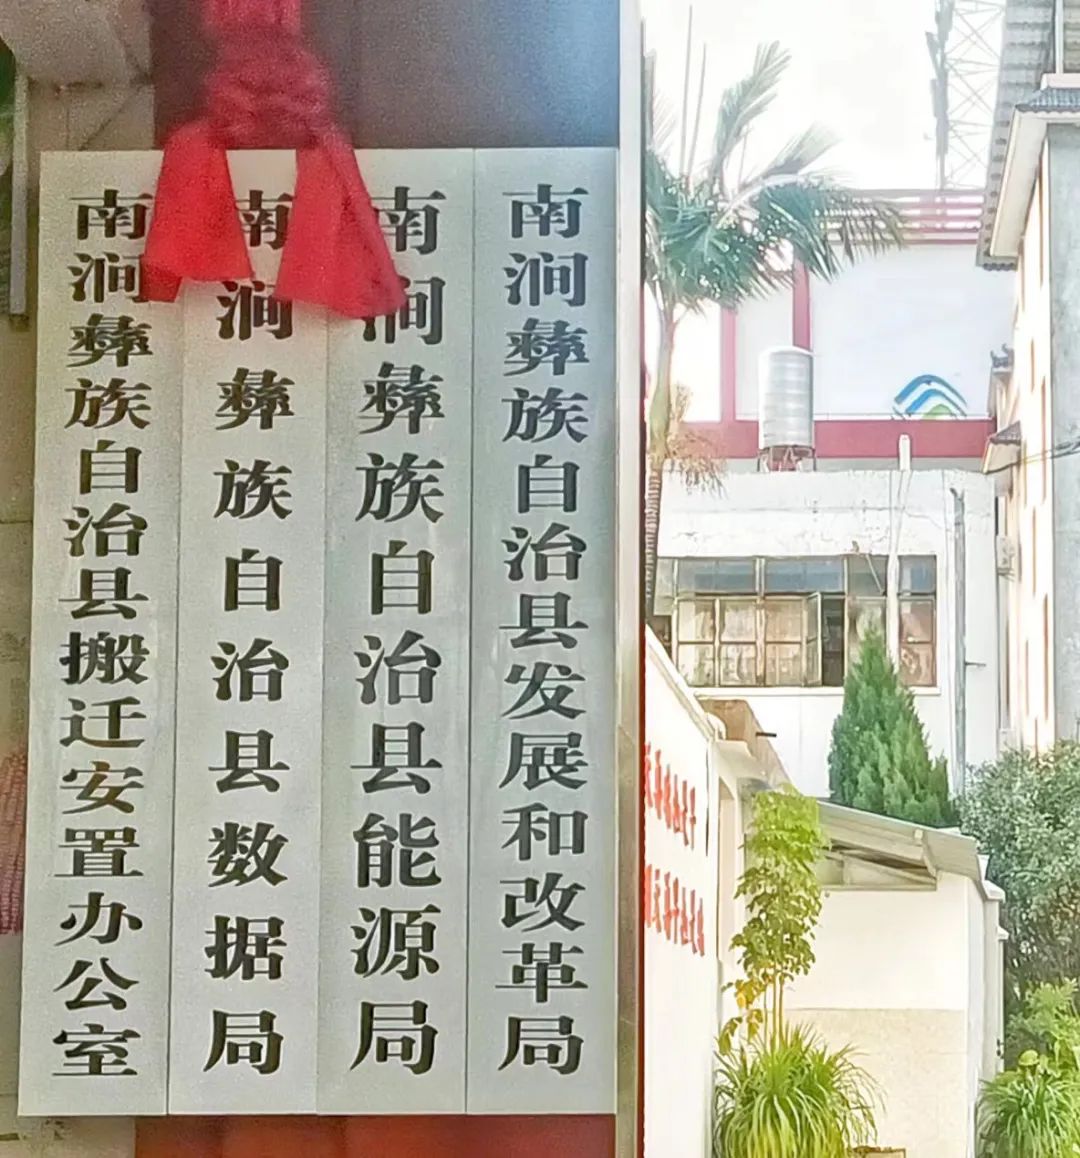 南涧彝族自治县发展和改革局
南涧彝族自治县能源局
南涧彝族自治县数据局
南涧彝族自治县搬迁安置办公室